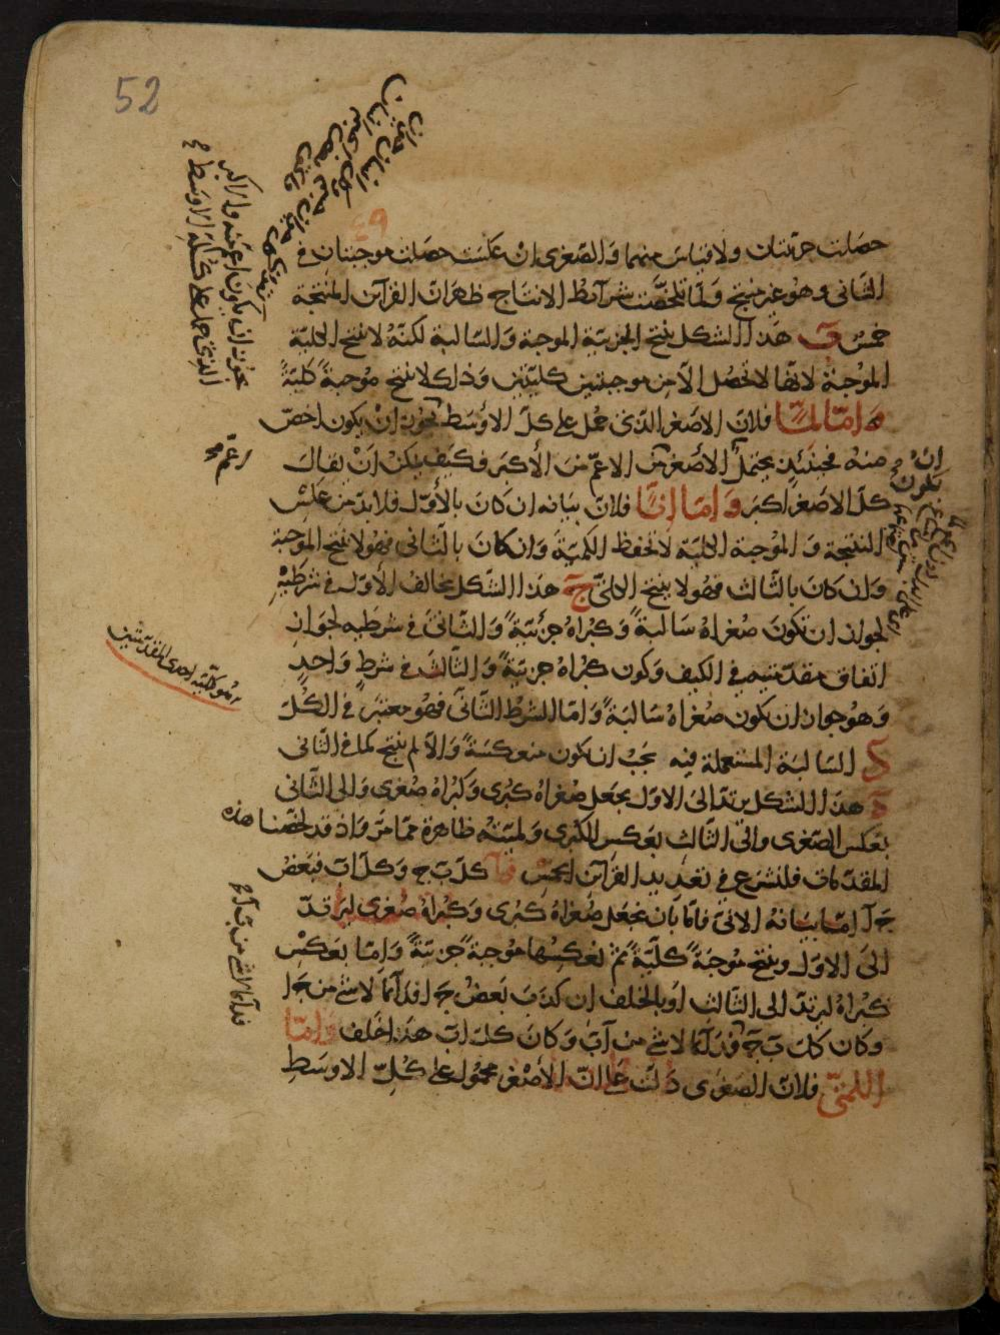 52
٤٩
حصلت جزئيتان ولا قياس منهما وَالصّغرى انْ عكست حصَلت موجبتانِ في
الثّانى وهوُ غير منتج وَلمّا تلخّصت شرآئطُ الانتاج ظهرَ انّ القرآئن المنتجة
خمسٌ بَ هَذا الشكل ينتج الجزئيّة الموجبة وَالسّالبة لكنّهُ لا ينتج الكليّة
الموُجبة لانّها لا تحصُل الاّ من موجبتين كليّتين وَذلك لا ينتج موُجبةً كليّةً
وَامّا لمّاً فلانّ الاصغر الذّى حمل على كلّ الاوُسَط يجوُز انْ يكون اخصّ
منهُ فحينئذٍ يحتملُ الأصغر من الاعمّ منَ الأكبَر فكيَف يمكنُ انْ يقالَ
كلّ الاصَغر اكبَر وَامّا انّاً فلانّ بيَانه ان كانَ بالأوّل فلا بدّ من عكس
النتيجة وَالموُجبة الكليّة لا تحفظ الكميّة وَان كانَ بالثّانى فهوُ لا ينتج الموُجبة
وَان كانَ بالثّالث فهوُ لا ينتج الكلىّ جَ هذا الشّكل يخالف الأوّل في شرطَيْهِ
لجوازِ ان تكونَ صُغراهُ سَالبةً وَكبُراهُ جزُئيّةً وَالثّانىَ في شرطيه لجوَازِ
اتفاق مقدّمتيه في الكيف وَكون كبُراهُ جزئيّةً وَالثّالثَ في شرطٍ وَاحدٍ
وَهوُ جوازُ ان تكون صُغراهُ سَالبَةً وَامّا الشّرطُ الثّانى فهوُ معتبَر في الكُلّ
دَ السّالبَة المسُتعملة فيه يجَبُ ان تكون منعَوكسَةً وَالاّ لم ينتج كما في الثّانى
هَ هذا الشكل يرتدّ الىَ الاوّل بجعل صغراهُ كبرى وَكبُراهُ صُغرى وَالى الثّانى
بعَكس الصّغرى والى الثّالث بعَكس الكبُرى وَلميّتهُ ظاهرة ممّا مرّ وَاذ قد لخصّنا هذه
المقدّمات فلنشرع في تعَديد القرآئن الخمسْ فآ كلّ بَ ج وَكلّ ا بَ فبَعضُ
جَ ا امّا بيَانهُ الانّى فامّا بأن نجعَل صُغراهُ كبُرى وَكبُراهُ صُغرى ليرتدّ
الىَ الاوّل وينتج موُجبَةً كليّةً ثمّ نعكسُها موُجبةً جزئيّةً وَامّا بعَكسْ
كبُراهُ ليرتدّ الى الثّالث اوَ بالخلفِ ان كذبَ بعَضُ جَ ا فدآئما لا شئ من جَ ا
وَكان كلّ بَ جَ فدآئما لا شئ من اَبَ وَكانَ كلّ ا بَ هذا خَلفٌ وَامّا
اللمىّ فلانّ الصّغرَى دَلّت علَى انّ الأصْغر محموُل على كُلّ الاوسَطِ
اعمّ
وهو كليّة احدى المقدّمتين
فدآئما لا شئ من بَ ا